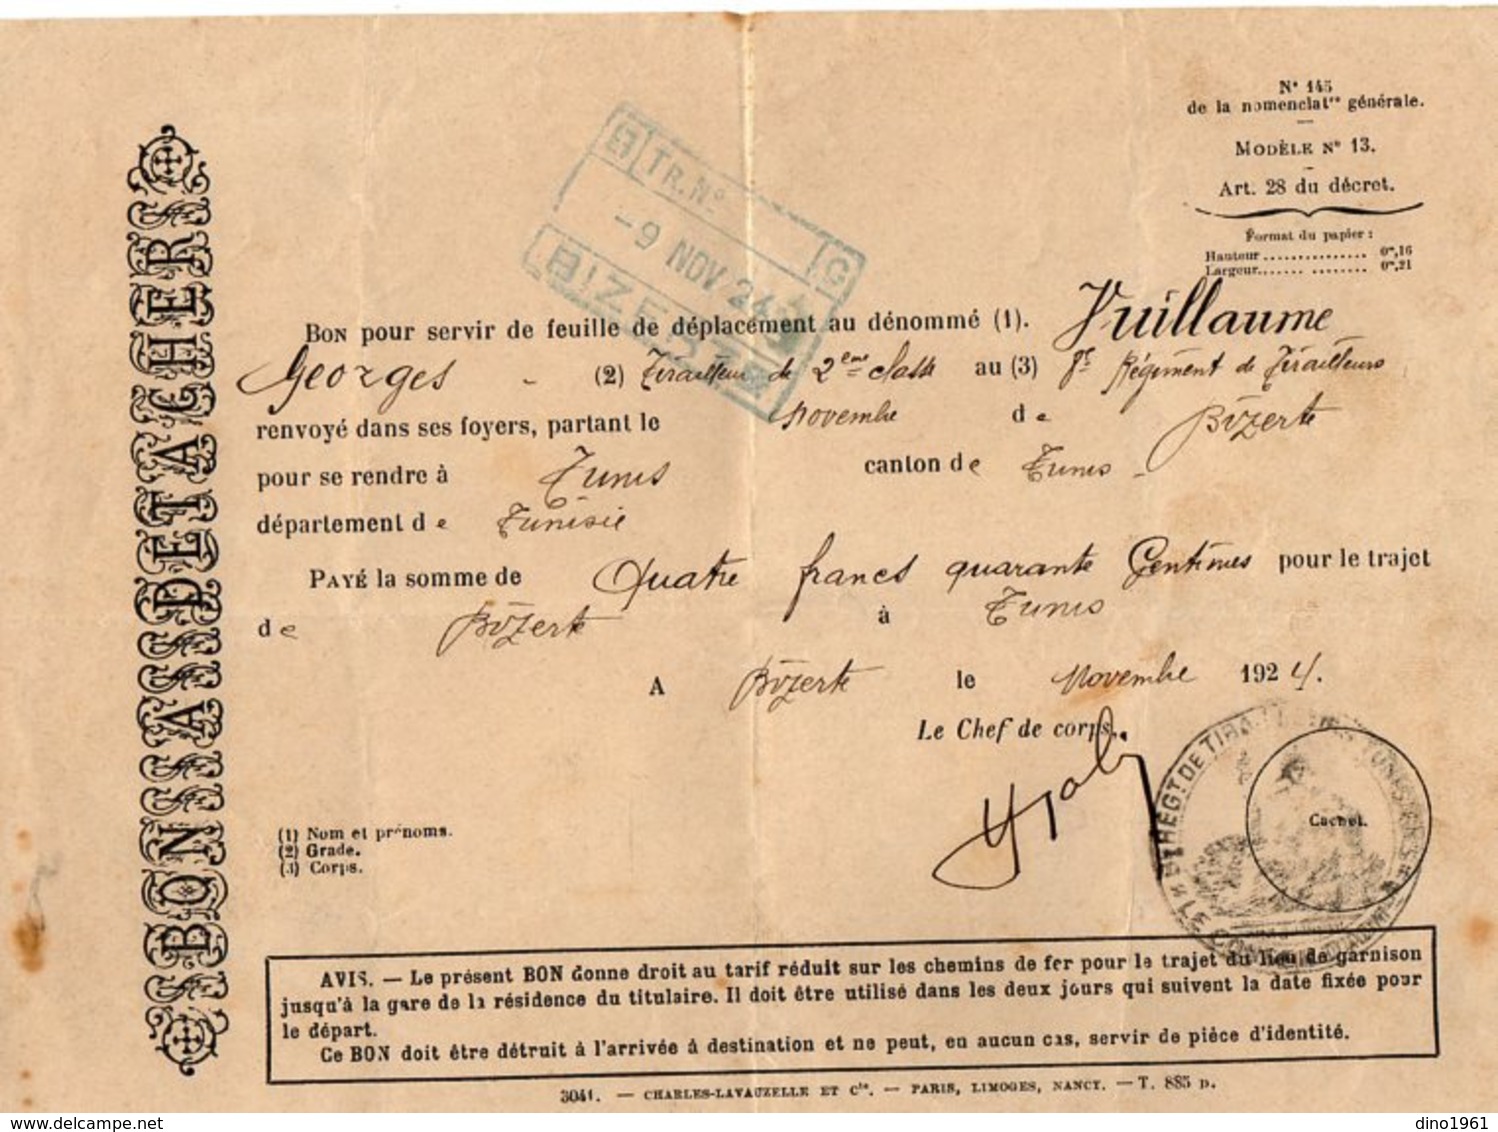 N° 145
de la nomenclatre générale.
MODÈLE N° 13.
Art. 28 du décret.
Format du papier :
Hauteur ............... 0m,16
Largeur....... ........ 0m,21
TR. N°
G
- 9 NOV 24
BIZERTE
BONS A DETACHER
BON pour servir de feuille de déplacement au dénommé (1). Vuillaume
Georges - (2) Tirailleur de 2ème classe au (3) Régiment de Tirailleurs
renvoyé dans ses foyers, partant le Novembre de Bizerte
pour se rendre à Tunis canton de Tunis -
département de Tunisie
PAYÉ la somme de Quatre francs quarante Centimes pour le trajet
de Bizerte à Tunis
A Bizerte le Novembre 1924.
Le Chef de corps.
Cachet.
(1) Nom et prénoms.
(2) Grade.
(3) Corps.
AVIS. — Le présent BON donne droit au tarif réduit sur les chemins de fer pour le trajet du lieu de garnison
jusqu'à la gare de la résidence du titulaire. Il doit être utilisé dans les deux jours qui suivent la date fixée pour
le départ.
Ce BON doit être détruit à l'arrivée à destination et ne peut, en aucun cas, servir de pièce d'identité.
3041. — CHARLES-LAVAUZELLE ET Cie. — PARIS, LIMOGES, NANCY. — T. 885 D.
dino1961